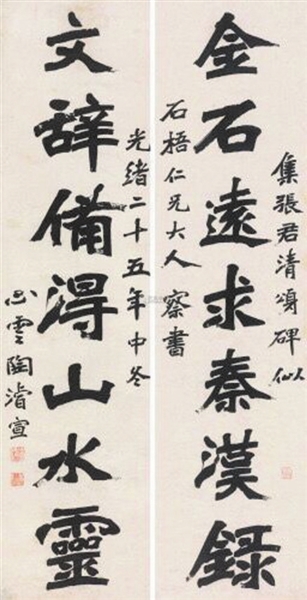 金石遠求秦漢錄
集張君清頌碑似
石梧仁兄大人察書
文辭備得山水靈
光緒二十五年中冬
心雲陶濬宣